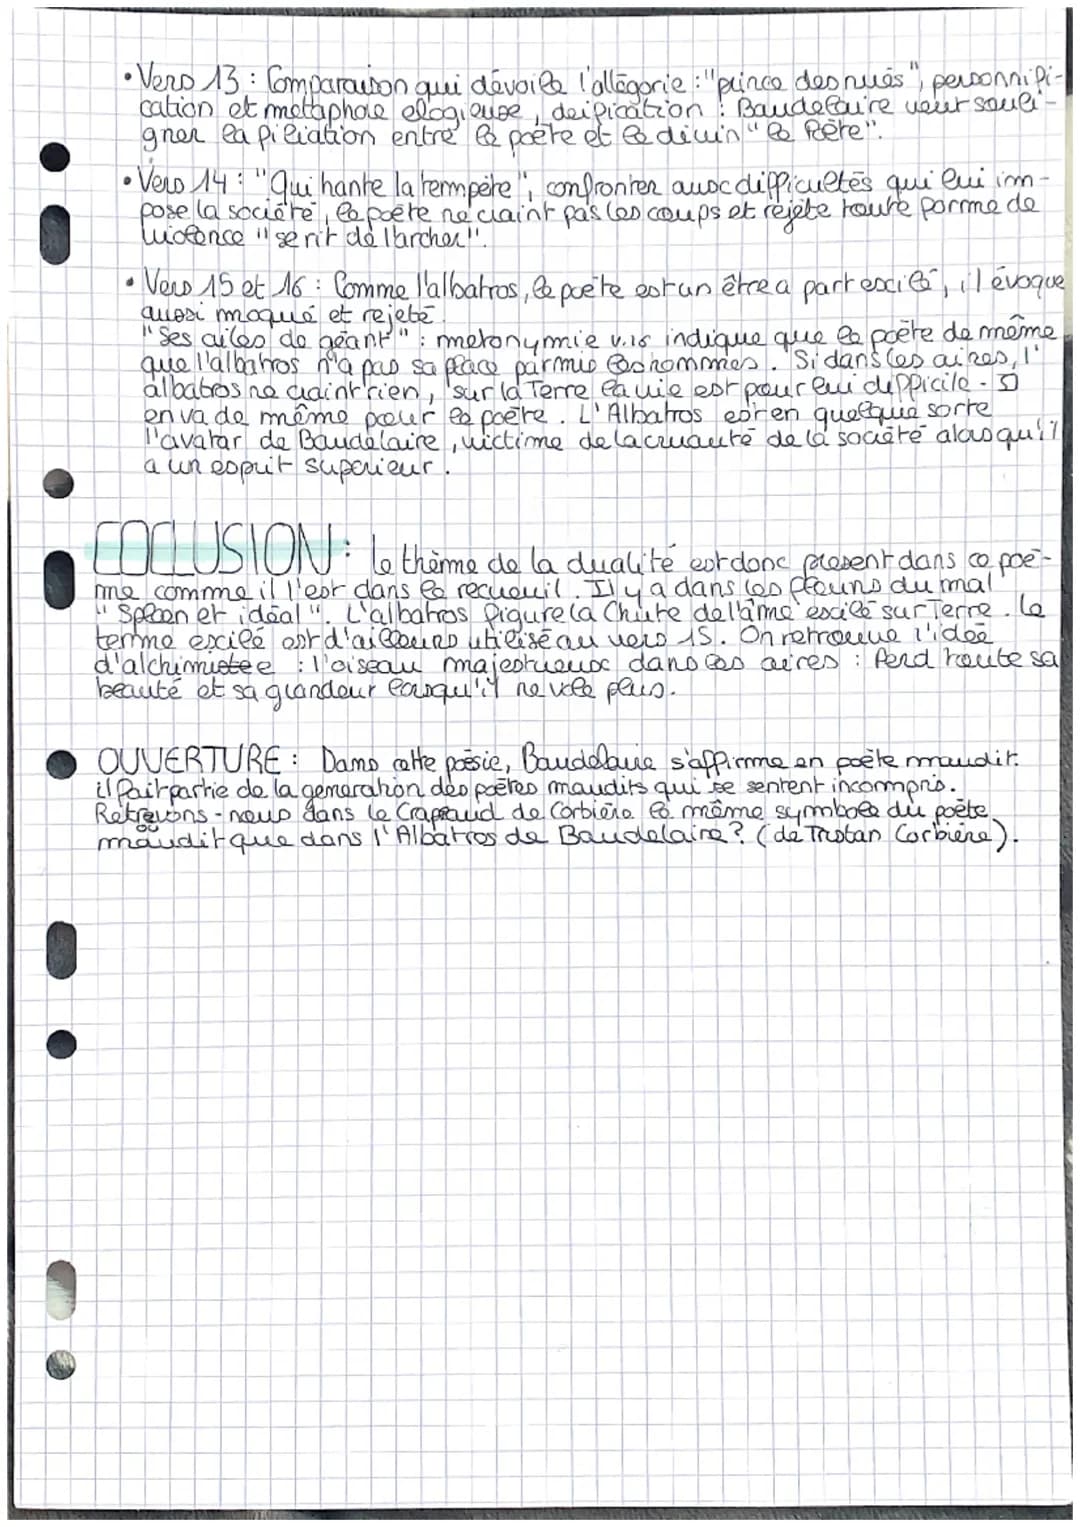 • Vers 13 : Comparaison qui dévoile l'allégorie : "prince des nués", personnifi-
cation et métaphore élogieuse, déification : Baudelaire veut souli-
gner la filiation entre le poète et le divin "le Poète".
• Vers 14 : "Qui hante la tempête", confronter aux difficultés qui lui im-
pose la société, le poète ne craint pas les coups et rejète toute forme de
violence "se rit de l'archer".
• Vers 15 et 16 : Comme l'albatros, le poète est un être a part exilé, il évoque
aussi moqué et rejeté.
"Ses ailes de géant" : metonymie v.16 indique que le poète de même
que l'albatros n'a pas sa place parmis les hommes. Si dans les aires, l'
albatros ne craint rien, sur la Terre la vie est pour lui difficile. Il
en va de même pour le poète. L'Albatros est en quelque sorte
l'avatar de Baudelaire, victime de la cruauté de la société alors qu'il
a un esprit supérieur.
COCLUSION : le thème de la dualité est donc présent dans ce poè-
me comme il l'est dans le recueuil. Il y a dans les fleurs du mal
"Spleen et idéal". L'albatros figure la Chute de l'âme exilé sur Terre. Le
terme exilé est d'ailleurs utilisé au vers 15. On retrouve l'idée
d'alchimistee : l'oiseau majestueux dans les aires : Perd toute sa
beauté et sa grandeur lorsqu'il ne vole plus.
OUVERTURE : Dans cette poésie, Baudelaire s'affirme en poète maudit.
il fait partie de la generation des poètes maudits qui se sentent incompris.
Retrouvons-nous dans le Crapaud de Corbière le même symbole du poète
maudit que dans l'Albatros de Baudelaire? (de Tristan Corbière).